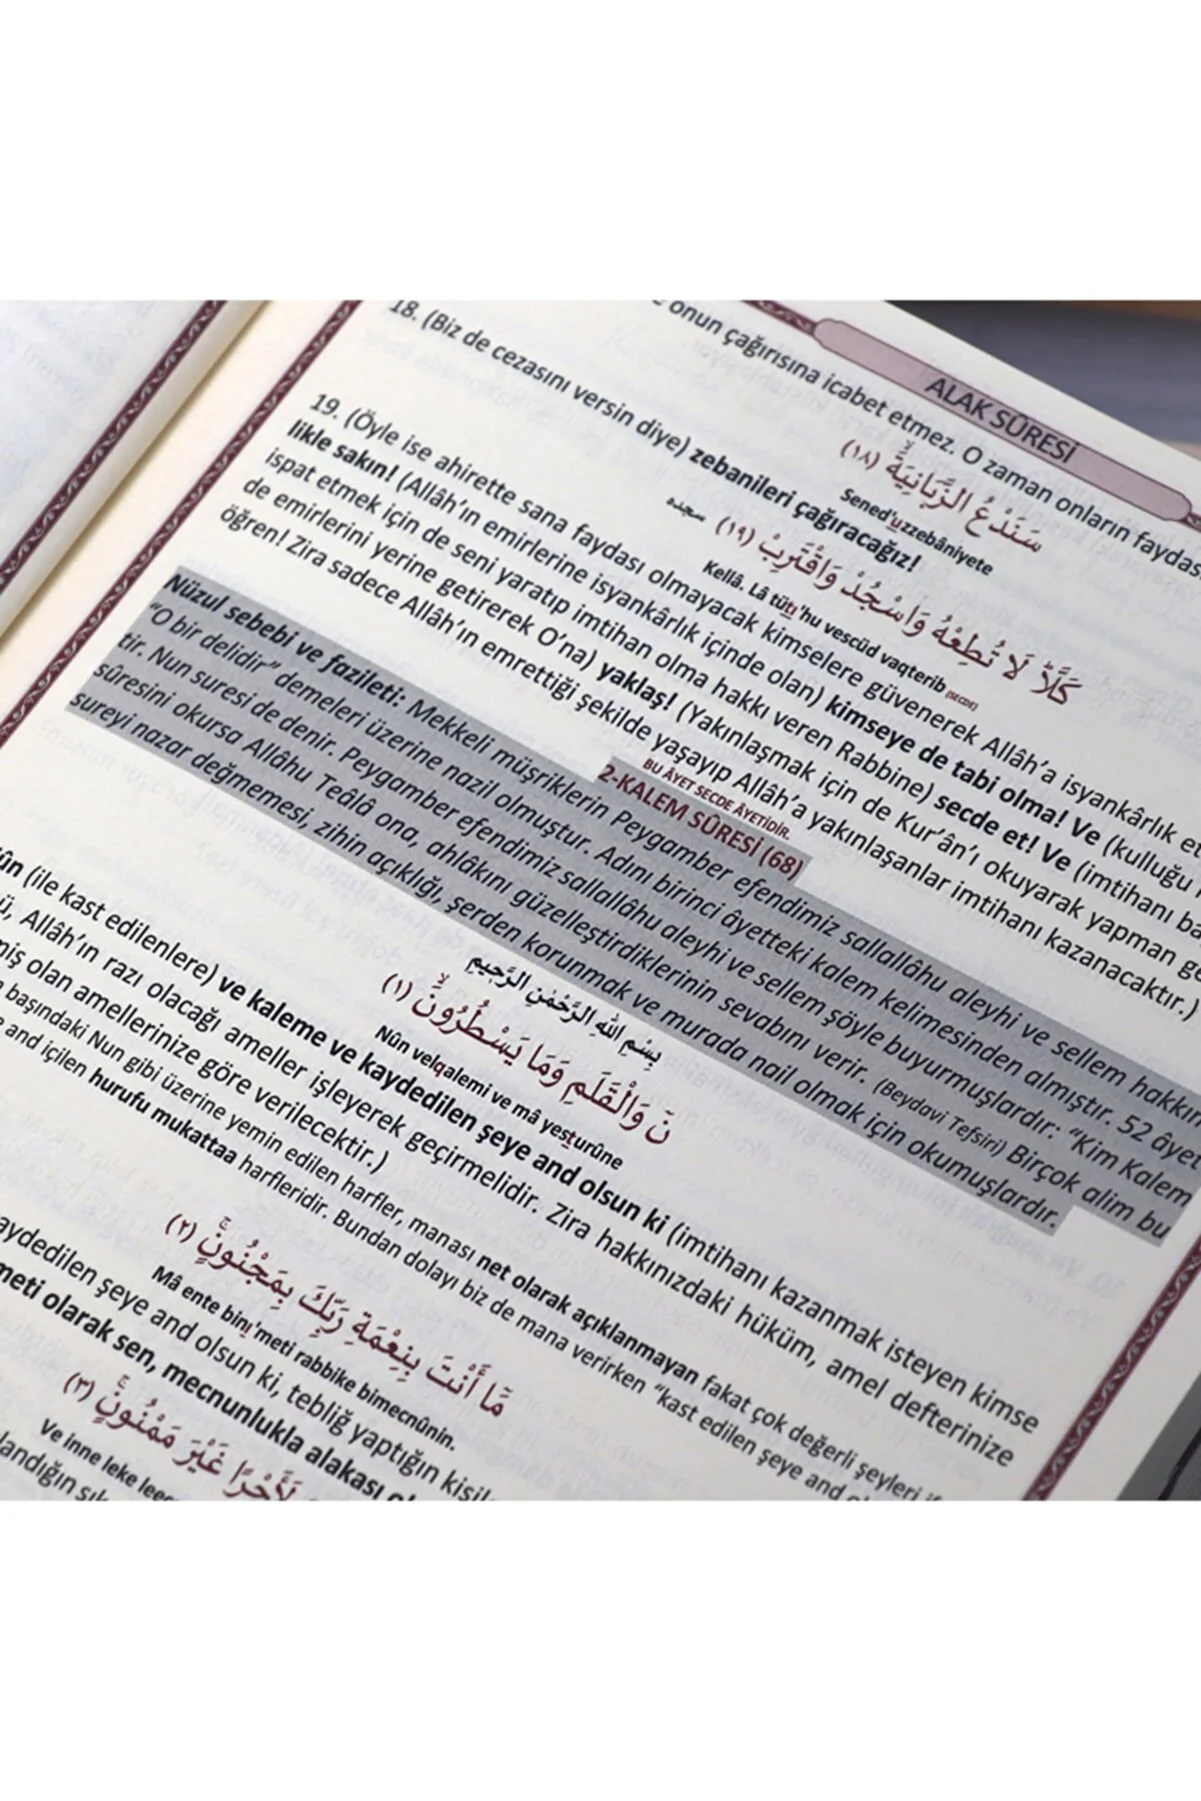 ALAK SÛRESİ
onun çağırısına icabet etmez. O zaman onların faydas
سَنَدْعُ الزَّبَانِيَةَۙ (١٨)
Sened'uzzebâniyete
18. (Biz de cezasını versin diye) zebanileri çağıracağız!
كَلَّاۜ لَا تُطِعْهُ وَاسْجُدْ وَاقْتَرِبْ (١٩) سجده
Kellâ. Lâ tütı'hu vescüd vaqterib (SECDE)
19. (Öyle ise ahirette sana faydası olmayacak kimselere güvenerek Allâh'a isyankârlık et
likle sakın! (Allâh'ın emirlerine isyankârlık içinde olan) kimseye de tabi olma! Ve (kulluğu
ispat etmek için de seni yaratıp imtihan olma hakkı veren Rabbine) secde et! Ve (imtihanı ba
de emirlerini yerine getirerek O'na) yaklaş! (Yakınlaşmak için de Kur'ân'ı okuyarak yapman ge
öğren! Zira sadece Allâh'ın emrettiği şekilde yaşayıp Allâh'a yakınlaşanlar imtihanı kazanacaktır.)
BU ÂYET SECDE ÂYETİDİR.
2-KALEM SÛRESİ (68)
Nüzul sebebi ve fazileti: Mekkeli müşriklerin Peygamber efendimiz sallallâhu aleyhi ve sellem hakkın
"O bir delidir" demeleri üzerine nazil olmuştur. Adını birinci âyetteki kalem kelimesinden almıştır. 52 âyet
tir. Nun suresi de denir. Peygamber efendimiz sallallâhu aleyhi ve sellem şöyle buyurmuşlardır: "Kim Kalem
sûresini okursa Allâhu Teâlâ ona, ahlâkını güzelleştirdiklerinin sevabını verir. (Beydavi Tefsiri) Birçok alim bu
sureyi nazar değmemesi, zihin açıklığı, şerden korunmak ve murada nail olmak için okumuşlardır.
بِسْمِ اللّٰهِ الرَّحْمٰنِ الرَّحِيمِ
نۤ وَالْقَلَمِ وَمَا يَسْطُرُونَۙ (١)
Nûn velqalemi ve mâ yesturûne
ûn (ile kast edilenlere) ve kaleme ve kaydedilen şeye and olsun ki (imtihanı kazanmak isteyen kimse
ü, Allâh'ın razı olacağı ameller işleyerek geçirmelidir. Zira hakkınızdaki hüküm, amel defterinize
miş olan amellerinize göre verilecektir.)
başındaki Nun gibi üzerine yemin edilen harfler, manası net olarak açıklanmayan fakat çok değerli şeyleri
and içilen hurufu mukattaa harfleridir. Bundan dolayı biz de mana verirken "kast edilen şeye and
مَاۤ اَنْتَ بِنِعْمَةِ رَبِّكَ بِمَجْنُونٍۚ (٢)
Mâ ente binı'meti rabbike bimecnûnin.
aydedilen şeye and olsun ki, tebliğ yaptığın
meti olarak sen, mecnunlukla alakası
لَاَجْرًا غَيْرَ مَمْنُونٍۚ (٣)
Ve inne leke